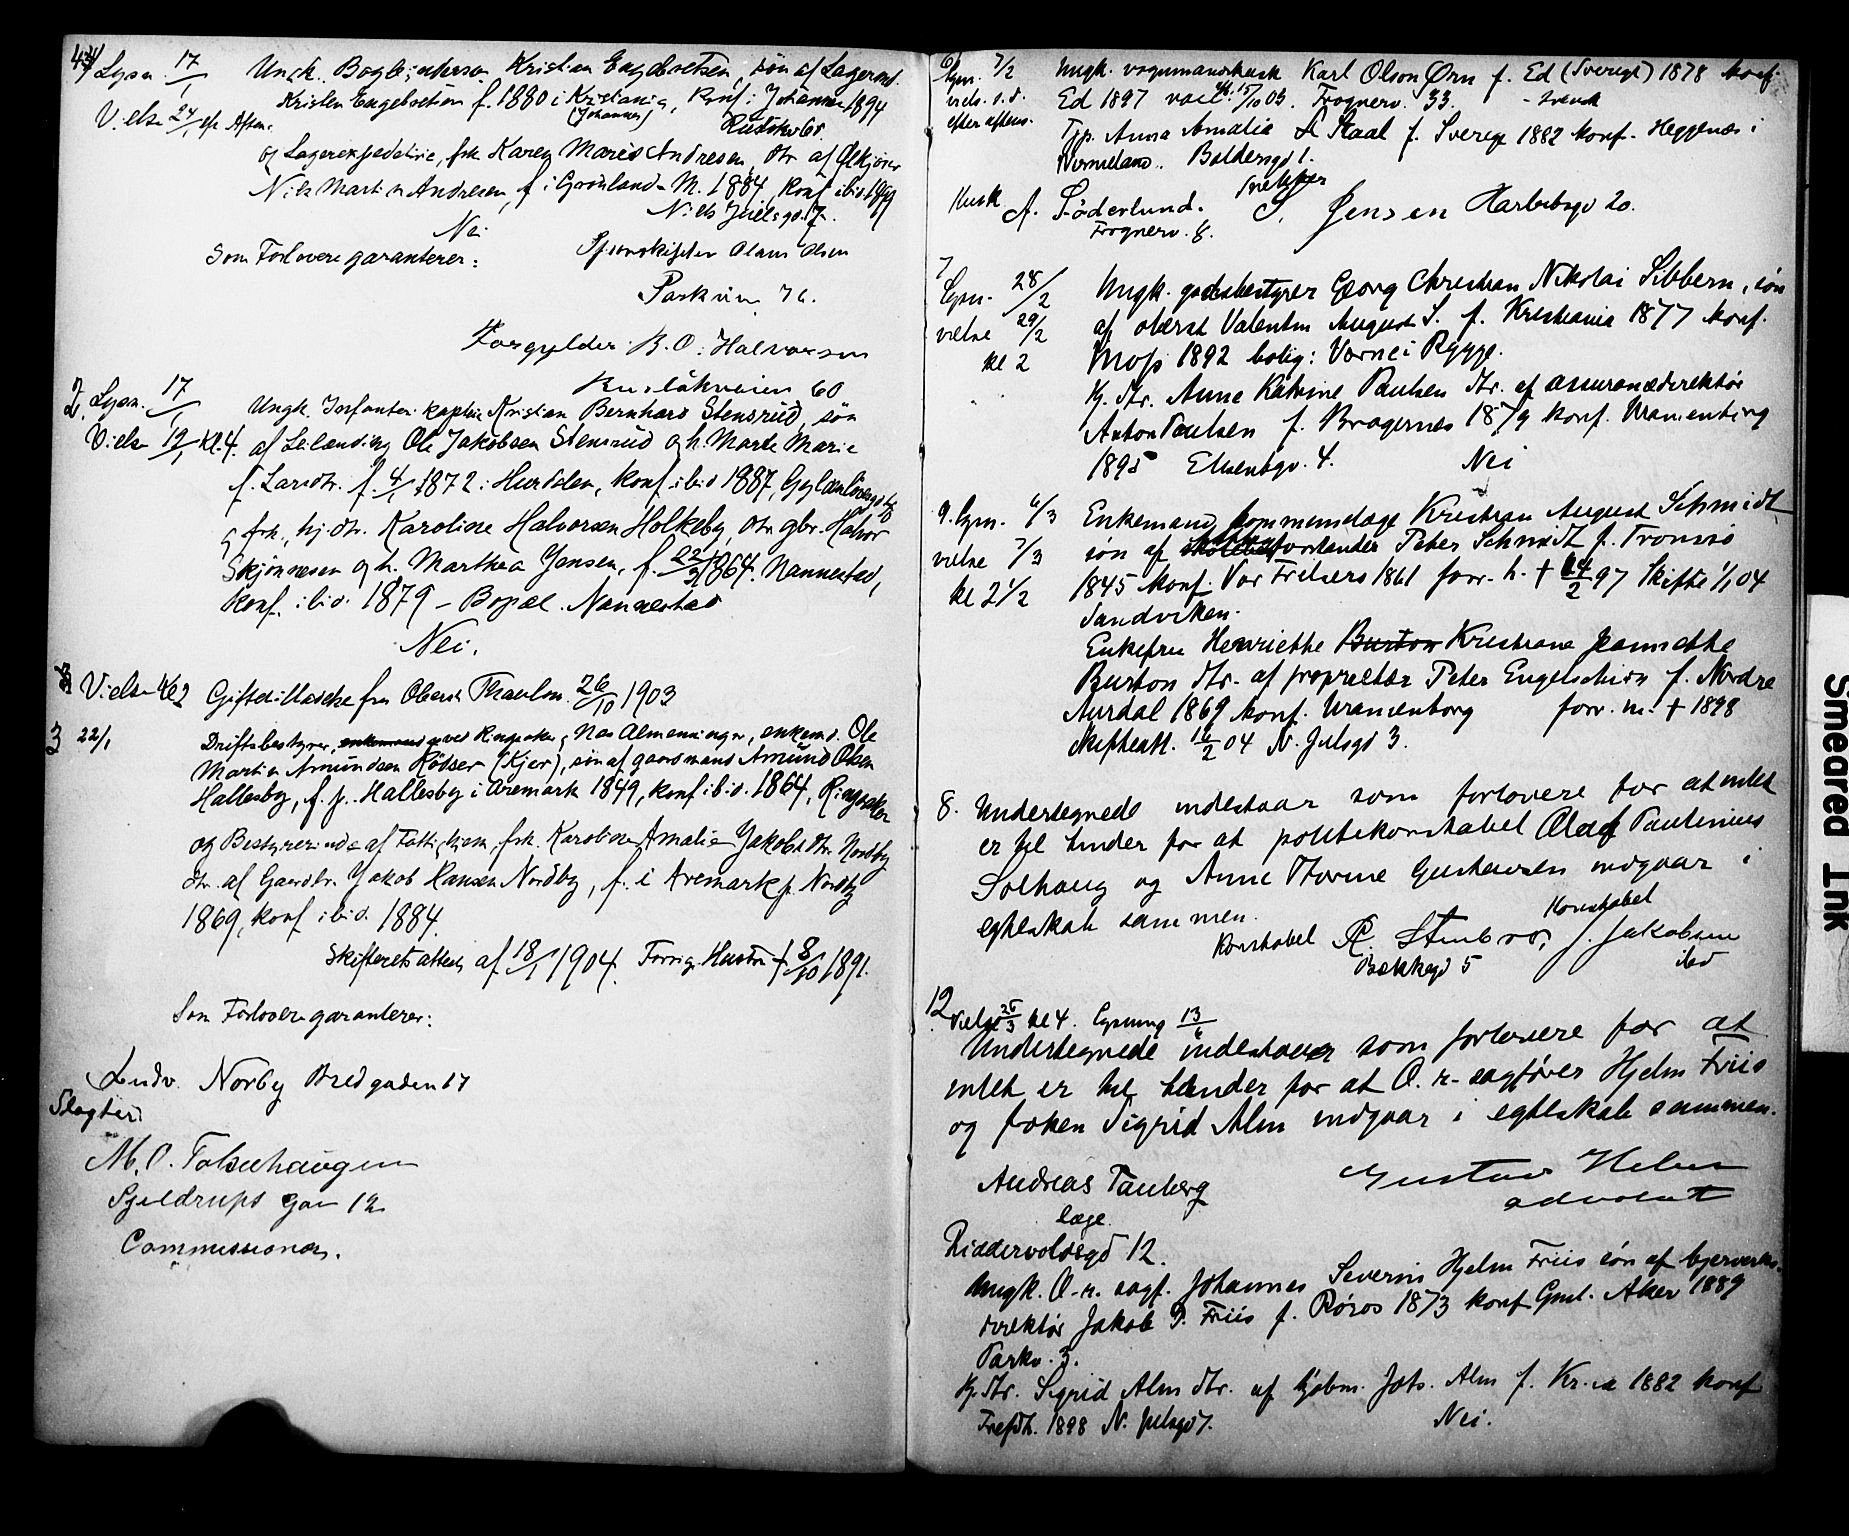 Lysn. 17/1 Ungk. Bogbindersv. Kristian Engebretsen, søn af Lagerond.
Kristen Engebretsen f. 1880 i Kristiania, konf. i Johannes 1894
(Johannes)
Vielse 24/1 eft. Aften.
og Lagerexpeditrice, frk. Karen Marie Andresen, dtr. af
Niels Martin Andresen, f. i Grønlands M. 1884, konf. ibid 1899
Niels Juelsgd. 7.
Nei
Som Forlovere garanterer: Olaus Olsen
Parkvn. 7c.
Forgylder B. O. Halvorsen
Ruslökveien 60
2. Lysn. 17/1 Ungk. Infanterikaptein Kristian Bernhard Stensrud, søn
Vielse 19/1 Kl. 4. af Leilænding Ole Jakobsen Stensrud og h. Marte Marie
f. Larsdtr. f. 4/1 1872 i Hurdalen, konf. ibid 1887,
og frk., hj. dtr. Karoline Halvorsen Holkeby, dtr. gbr. Halvor
Skjønnesen og h. Marthea Jensen, f. 22/9 1864. Nannestad,
konf. ibid. 1879 – Bopæl. Nannestad
Nei.
Vielse Kl 2 Giftetilladelse fra Oberst Thaulow 26/10 1903
3 22/1 Driftsbestyrer, enkemand ved Ringsaker, Næs Almenninger, enkem. Ole
Martin Amundsen Rödser (Kjer), søn af gaardmand Amund Olsen
Hallesby, f. p. Hallesby i Aremark 1849, konf. ibid. 1864, Ringsaker
og Bestyrerinde af Fattighjem, frk. Karoline Amalie Jakobsdtr. Nordby
dtr. af Gaardbr. Jakob Hansen Nordby, f. i Aremark p. Nordby
1869, konf. ibid. 1884.
Skifteretsattest af 18/1 1904. Forrige Hustru † 8/10 1891.
Som Forlovere garanterer:
Ludv. Norby Bredgaden 17
Slagter
M. O. Tolsehaugen
Sjeldrups Gad 12
Commissionær.
6 Lysn. 7/2 Ungk. vognmandskusk Karl Olson Örn f. Ed (Sverige) 1878 konf.
viels. s. d. Ed 1897 vacc. 15/10 03. Frognerv. 33. - svensk
efter aftens. Tjp. Anna Amalia Staal f. Sverige 1882 konf. Heggenæs i
Vermeland. Baldersgd 1.
Kusk A. Söderlund. Snekker S. Jensen Harbitzgd 20.
Frognerv. 8.
7
Lysn. 28/2 Ungk. godsbestyrer Georg Christian Nikolai Sibbern, søn
vielse 29/2 af oberst Valentin August S. f. Kristiania 1877 konf.
kl 2 Moss 1892 bolig: Værne i Rygge.
Pg. dtr. Anne Katrine Paulsen dtr. af assurancedirektør
Anton Paulsen f. Bragernes 1879 konf. Uranienborg
1895 Elisenbgv. 4. Nei
9. Lysn. 6/3 Enkemand, kommunelæge Kristian August Schmidt,
vielse 7/3 søn af forstander Peter Schmidt f. Tromsø
kl 2 1/2 1845 konf. Vor Frelsers 1861 forr. h. † 14/2 97 Skifte 1/1 04
Sandviken.
Enkefru Henriette Burton Kristiane Jeannette
Burton dtr. af proprietær Peter Engelschiøn f. Nordre
Aurdal 1869 konf. Uranienborg forr. m. † 1898
skifteatt. 16/2 04 N. Julsgd 3.
8. Undertegnede indestaar som forlovere for at intet
er til hinder for at politikonstabel Olaf Paulinius
Solhaug og Anne Thorine Gustavsen indgaar i
egteskab sammen.
Konstabel A. Stenbro, Konstabel J. Jakobsen
Bækkegd 5 ibid
12.
Vielse 25/3 kl 4. Lysning 13/6
Undertegnede indestaar som forlovere for at
intet er til hinder for at O. r. sagfører Hjelm Friis
og frøken Sigrid Alm indgaar i egteskab sammen.
Andreas Tanberg Gustav Heber
læge advokat
Riddervoldsgd 12.
Ungk. O. r. sagf. Johannes Severin Hjelm Friis søn af bergverks-
direktør Jakob P. Friis f. Røros 1873 konf. Gml. Aker 1889
Parkv. 3.
Pg. dtr. Sigrid Alm dtr. af kjøbm. Johs. Alm f. Kr.ia 1882 konf
Trefdh. 1898 N. Julsgd 7. Nei.
Smeared Ink